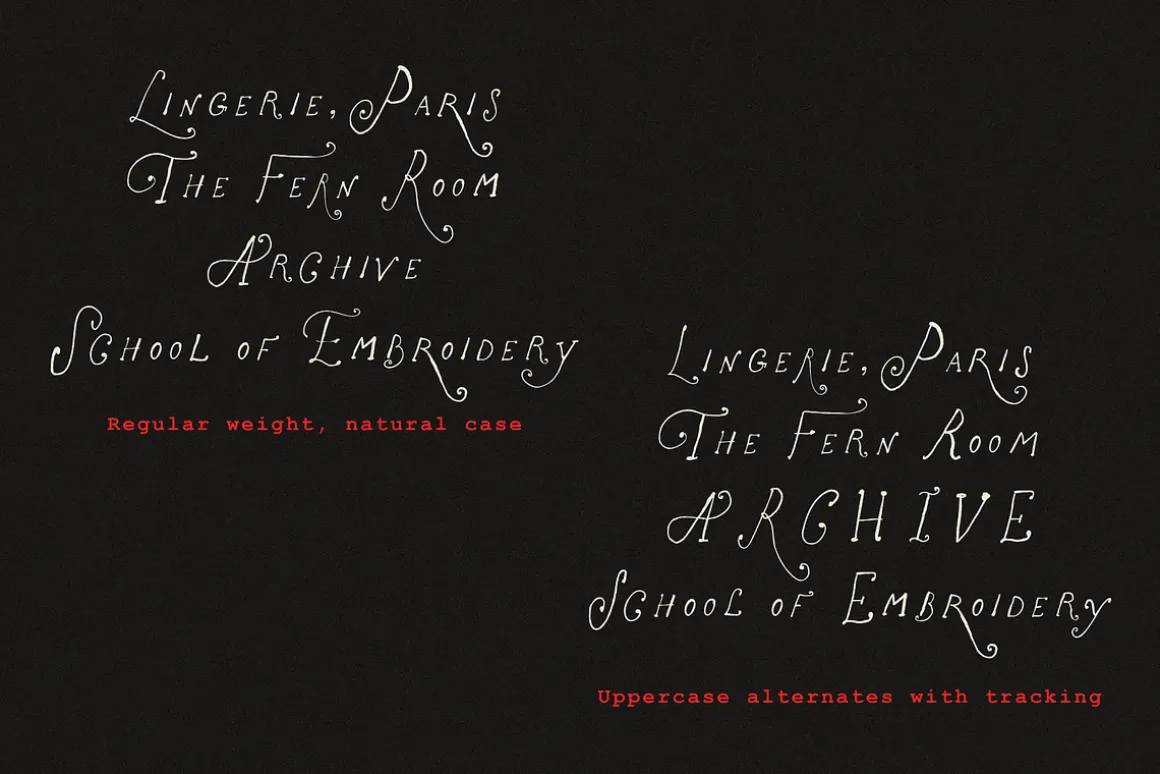 Lingerie, Paris
The Fern Room
Archive
School of Embroidery
Regular weight, natural case
Lingerie, Paris
The Fern Room
ARCHIVE
School of Embroidery
Uppercase alternates with tracking